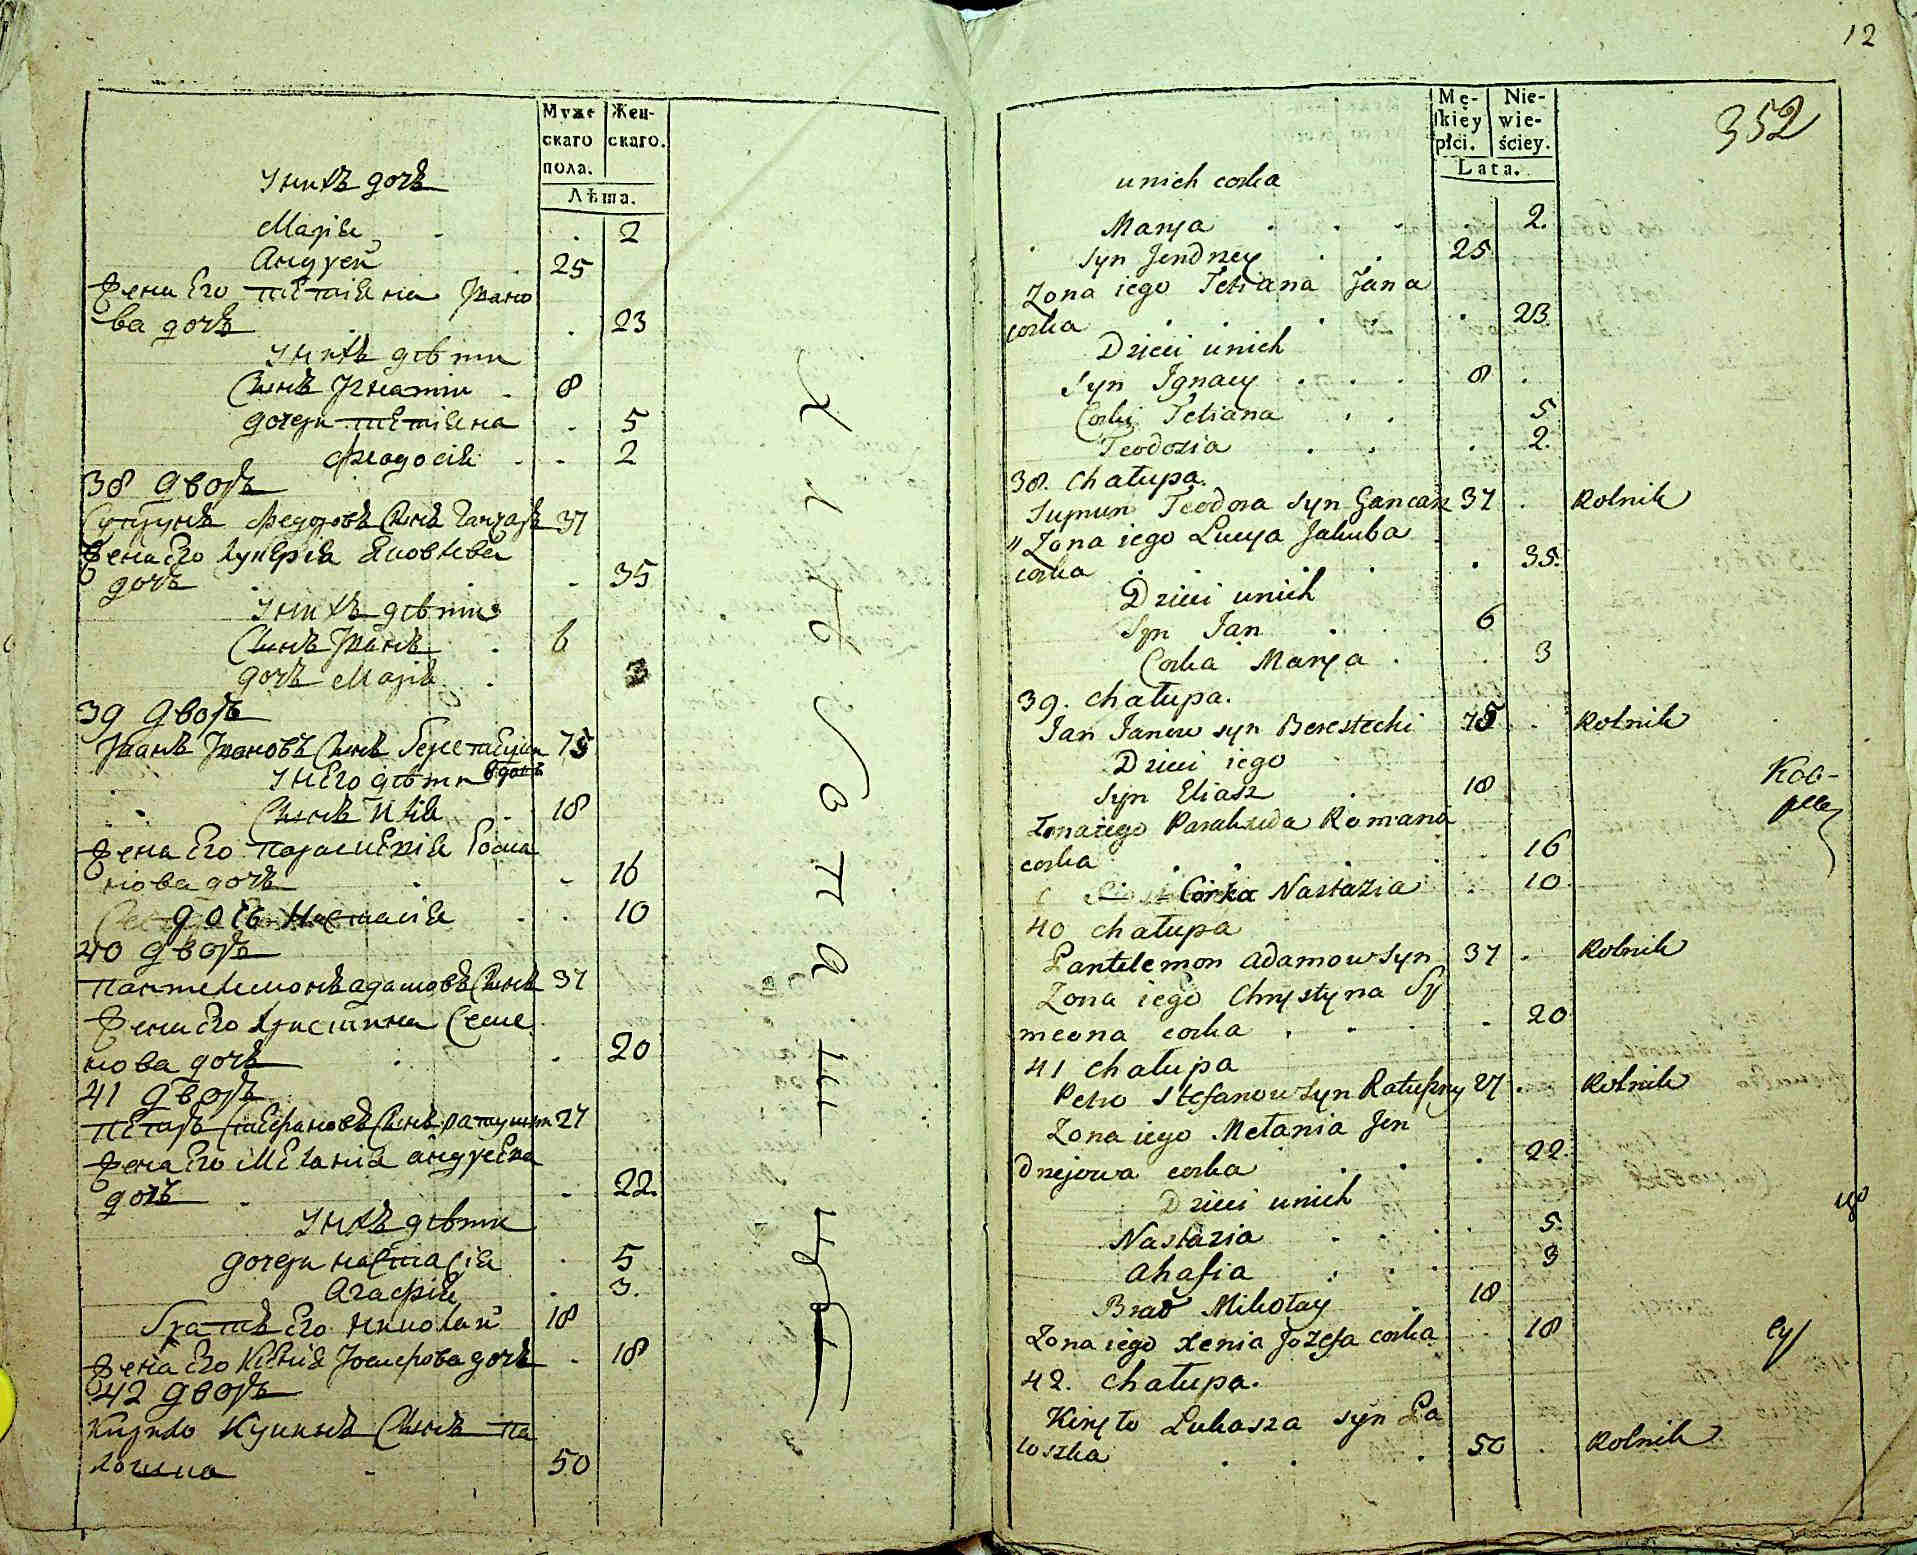 Муже
скаго
пола.
Жен-
скаго.
Лѣта.
У нихъ дочь
Марія 2
Андрей 25
Жена Его Тетіяна Ивано
ва дочь 23
У нихъ дѣти
Сынъ Игнатій 8
дочери Тетіяна 5
Феодосія 2
38 дворъ
Супрунъ Федоровъ Сынъ Ганчаръ 37
Жена Его Лукерія Яковлева
дочь 35
У нихъ дѣти
Сынъ Иванъ 6
дочь Марія 3
39 дворъ
Иванъ Ивановъ Сынъ Берестецкій 75
У него дѣти вдовъ
Сынъ Илія 18
Жена Его Параскевія Рома
нова дочь 16
дочь Настасія 10
40 дворъ
Пантелимонъ Адамовъ Сынъ 37
Жена Его Христина Семе
нова дочь 20
41 дворъ
Петръ Стефановъ Сынъ Ратушн 27
Жена Его Меланія Андреева
дочь 22.
У нихъ дѣти
дочери Настасія 5
Агафія 3.
Братъ Его Николай 18
Жена Его Ксенія Іосифова дочь 18
42 дворъ
Кирило Лукинъ Сынъ Па
лошка 50
12
352
Mę-
skiey
płci.
Nie-
wie-
ściey.
Lata.
unich corka
Marya 2.
Syn Jendrzey 25
Zona iego Tetiana Jana
corka 23
Dzieci unich
Syn Ignacy 8
Corki Tetiana 5
Teodozia 2.
38. Chałupa.
Suprun Teodora Syn Gancarz 37 Rolnik
Zona iego Lucya Jakuba
corka 35.
Dzieci unich
Syn Jan 6
Corka Marya 3
39. Chałupa.
Jan Janow syn Berestecki 75 Rolnik
Dzieci iego
Syn Eliasz 18
Zona iego Paraskeda Romana
corka 16
Córka Nastazia 10
40 Chałupa
Pantelemon Adamow Syn 37 Rolnik
Zona iego Chrystyna Sy
meona corka 20
41 Chałupa
Petro Stefanow Syn Ratuszny 27 Rolnik
Zona iego Metania Jen
drzejowa corka 22.
Dzieci unich
Nastazia 5.
Ahafia 3
Brat Mikołay 18
Zona iego Xenia Jozefa corka 18
42. Chałupa.
Kiryło Lukasza syn Pa
łoszka 50 Rolnik